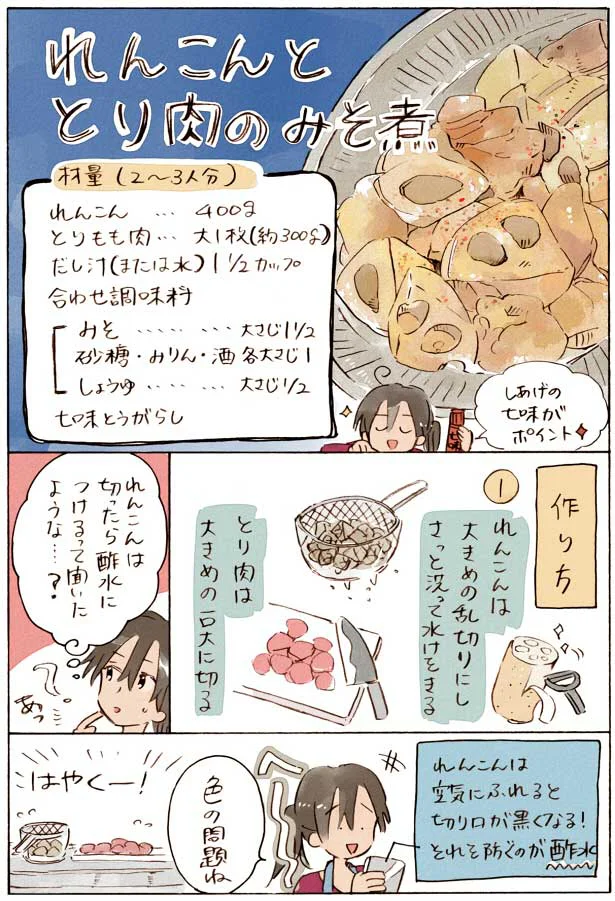 れんこんと
とり肉のみそ煮
材量(2〜3人分)
れんこん … 400g
とりもも肉… 大1枚(約300g)
だし汁(または水) 1 1/2カップ
合わせ調味料
みそ ‥‥‥ … 大さじ1 1/2
砂糖・みりん・酒 各大さじ1
しょうゆ ‥‥ … 大さじ1/2
七味とうがらし
七味
しあげの
七味が
ポイント
作り方
①
れんこんは
大きめの乱切りにし
さっと洗って水けをきる
とり肉は
大きめの一口大に切る
れんこんは
切ったら酢水に
つけるって聞いた
ような……?
あっ
れんこんは
空気にふれると
切り口が黒くなる!
それを防ぐのが酢水
へー
色の問題ね
はやくー!